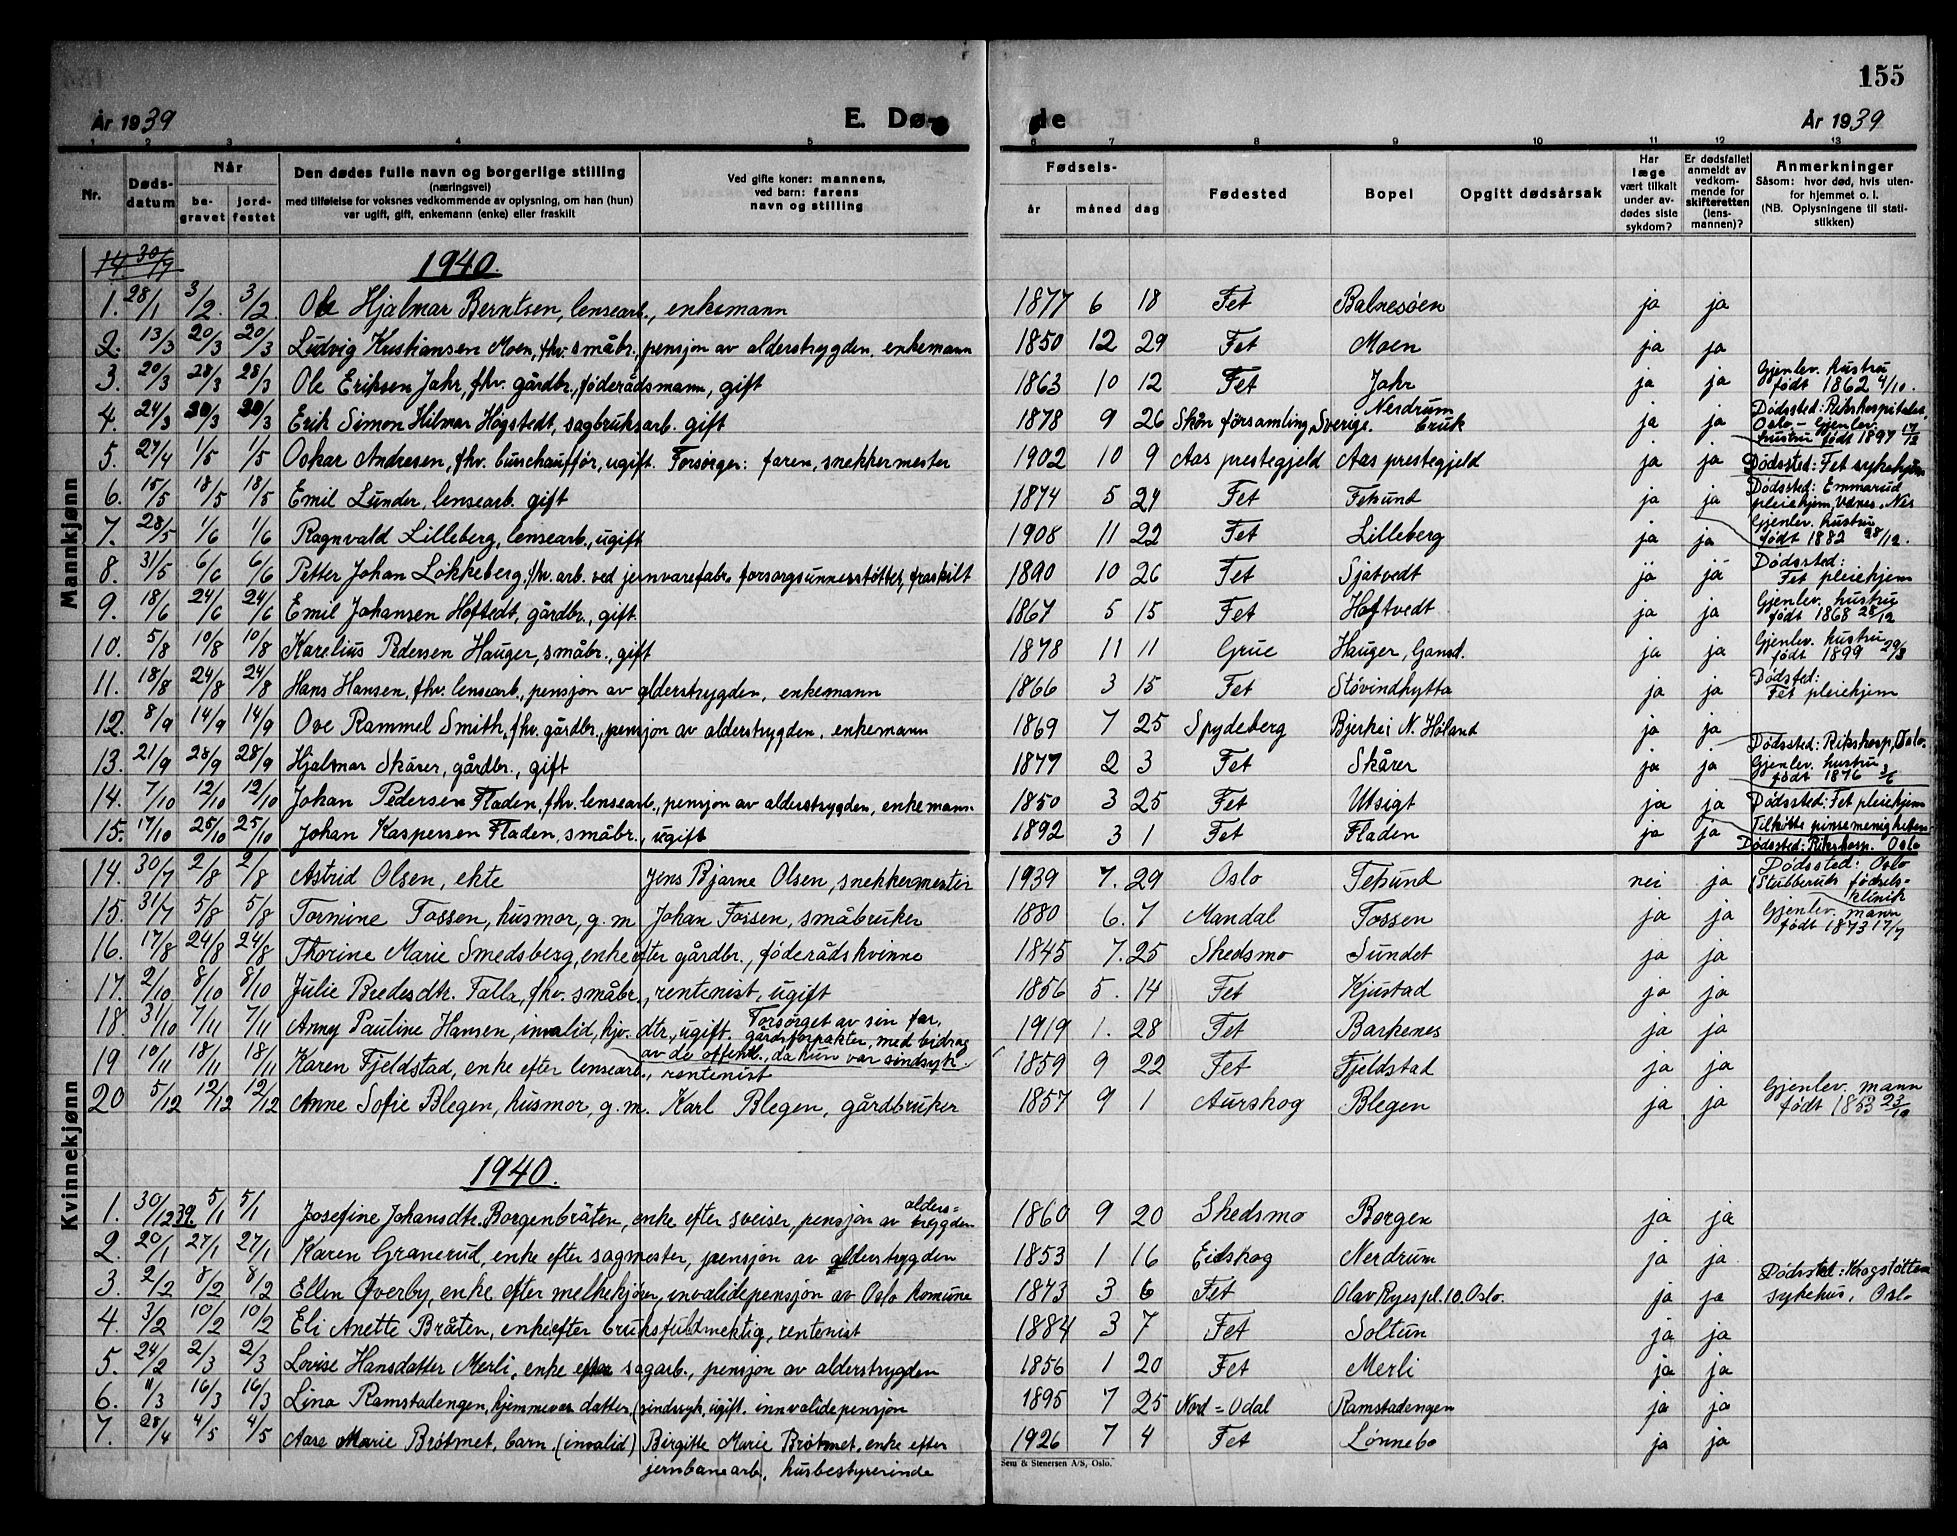 155
År 1939 E. Dø- de År 1939
1 2 3 4 5 6 7 8 9 10 11 12 13
Nr. Døds-datum Når be-gravet jord-festet Den dødes fulle navn og borgerlige stilling (næringsvei) med tilføielse for voksnes vedkommende av oplysning, om han (hun) var ugift, gift, enkemann (enke) eller fraskilt Ved gifte koner: mannens, ved barn: farens navn og stilling Fødsels- år måned dag Fødested Bopel Opgitt dødsårsak Har læge vært tilkalt under av-dødes siste sykdom? Er dødsfallet anmeldt av vedkom-mende for skifteretten (lens-mannen)? Anmerkninger Såsom: hvor død, hvis uten-for hjemmet o. l. (NB. Oplysningene til stati-stikken)
Mannkjønn
14. 30/7
1940.
1. 28/1 3/2. 3/2. Ole Hjalmar Berntsen, lensearb., enkemann 1877 6 18 Fet Balnesøen ja ja
2. 13/3 20/3 20/3 Ludvig Kristiansen Moen, fhv. småbr., pensjon av alderstrygden, enkemann 1850 12 29 Fet Moen ja ja
3. 20/3 28/3 28/3 Ole Eriksen Jahr, fhv. gårdbr., føderådsmann, gift 1863 10 12 Fet Jahr ja ja Gjenlev. hustru født 1862 4/10.
4. 24/3 30/3 30/3 Erik Simon Hilmar Högstedt, sagbruksarb. gift 1878 9 26 Skön församling, Sverige. Nerdrum bruk ja ja Dødssted: Rikshospitalet, Oslo - Gjenlev. hustru født 1897 17/12
5. 27/4 1/5 1/5 Oskar Andresen, fhv. busschauffør, ugift. Forsørger: faren, snekkermester 1902 10 9 Aas prestegjeld Aas prestegjeld ja ja Dødssted: Fet sykehjem
6. 15/5 18/5 18/5 Emil Lunder, lensearb. gift 1874 5 24 Fet Fetsund ja ja Dødssted: Emmarud pleiehjem, Vormes. Nes Gjenlev. hustru født 1882 28/12.
7. 28/5 1/6 1/6 Ragnvald Lilleberg, lensearb., ugift 1908 11 22 Fet Lilleberg ja ja
8. 31/5 6/6 6/6 Petter Johan Løkkeberg, fhv. arb. ved jernvarefabr. forsorgsunnerstøttet, fraskilt 1890 10 26 Fet Sjatvedt ja ja Dødssted: Fet pleiehjem
9. 18/6 24/6 24/6 Emil Johansen Hoftedt, gårdbr., gift. 1867 5 15 Fet Hoftvedt ja ja Gjenlev. hustru født 1868 25/12
10. 5/8 10/8 10/8 Karelius Pedersen Hauger, småbr., gift 1878 11 11 Grue Hauger, Gansd. ja ja Gjenlev. hustru født 1899 29/3
11. 18/8 24/8 24/8 Hans Hansen, fhv. lensearb., pensjon av alderstrygden, enkemann 1866 3 15 Fet Støvindhytta ja ja Dødsted: Fet pleiehjem
12. 8/9 14/9 14/9 Ove Rammel Smith, fhv. gårdbr., pensjon av alderstrygden, enkemann 1869 7 25 Spydeberg Bjerke i N. Høland ja ja
13. 21/9 28/9 28/9 Hjalmar Skårer, gårdbr., gift 1877 2 3 Fet Skårer ja ja Dødssted: Rikshosp, Oslo. Gjenlev. hustru født 1876 3/6
14. 7/10 12/10 12/10 Johan Pedersen Fladen, fhv. lensearb., pensjon av alderstrygden, enkemann 1850 3 25 Fet Utsigt ja ja Dødssted: Fet pleiehjem
15. 17/10 25/10 25/10 Johan Kaspersen Fladen, småbr., ugift 1892 3 1 Fet Fladen ja ja Tilhørte pinsemenigheten Dødssted: Rikshosp. Oslo
Kvinnekjønn
14. 30/7 2/8 2/8 Astrid Olsen, ekte Jens Bjarne Olsen, snekkermester 1939 7. 29 Oslo Fetsund nei ja Dødssted: Oslo (Stubberuds fødsels=klinik
15. 31/7 5/8 5/8 Tornine Fossen, husmor, g. m. Johan Fossen, småbruker 1880 6. 7 Mandal Fossen ja ja Gjenlev. mann født 1873 17/7
16. 17/8 24/8 24/8 Thorine Marie Smedsberg, enke efter gårdbr., føderådskvinne 1845 7. 25 Skedsmo Sundet ja ja
17. 2/10 8/10 8/10 Julie Bredesdtr. Falla, fhv. småbr., rentenist, ugift 1856 5. 14 Fet Kjustad ja ja
18. 31/10 7/11 7/11 Anny Pauline Hansen, invalid, hjv. dtr., ugift. Forsørget av sin far, gårdsforpakter, med bidrag av de offentl., da hun var sindssyk. 1919 1. 28 Fet Barkenes ja ja
19 10/11 18/11 18/11 Karen Fjeldstad, enke efter lensearb., rentenist 1859 9 22 Fet Fjeldstad ja ja
20 5/12 12/12 12/12 Anne Sofie Blegen, husmor, g. m. Karl Blegen, gårdbruker 1857 9 1 Aurskog Blegen ja ja Gjenlev. mann født 1853 23/10
1940.
1. 30/12 39. 5/1 5/1 Josefine Johansdtr. Borgenbråten, enke efter sveiser, pensjon av alders=trygden 1860 9 20 Skedsmo Borgen ja ja
2. 20/1 27/1 27/1 Karen Granerud, enke efter sagmester, pensjon av alderstrygden 1853 1 16 Eidskog Nerdrum ja ja
3. 2/2 8/2 8/2 Ellen Øverby, enke efter melkekjører, invalidepensjon av Oslo komune 1873 3 6 Fet Olav Ryes pl. 10. Oslo. ja ja Dødssted: Krogstøtten sykehus, Oslo
4. 3/2 10/2 10/2 Eli Anette Bråten, enke efter bruksfuldmektig, rentenist 1884 3 7 Fet Soltun ja ja
5. 24/2 2/3 2/3 Lovise Hansdatter Merli, enke efter sagarb., pensjon av alderstrygden 1856 1 20 Fet Merli ja ja
6. 11/3 16/3 16/3 Lina Ramstadengen, hjemmevær. datter, (sindssyk, ugift. innvalidepensjon 1895 7 25 Nord=Odal Ramstadengen ja ja
7. 28/4 4/5 4/5 Aase Marie Brøtmet, barn, (invalid) Birgitte Marie Brøtmet, enke efter jernbanearb., husbestyrerinde 1926 7 4 Fet Lønnebo ja ja
Sem & Stenersen A/S, Oslo.